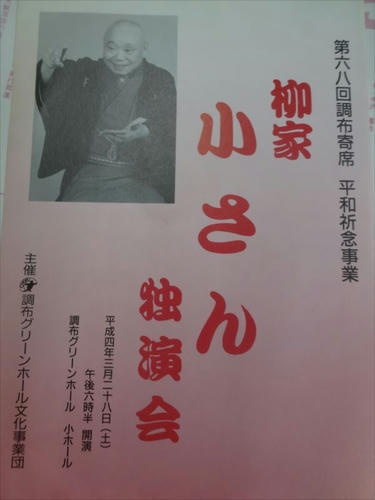 第六八回調布寄席　平和祈念事業
柳家
小さん
独演会
平成四年三月二十八日（土）
午後六時半　開演
調布グリーンホール　小ホール
主催　調布グリーンホール文化事業団